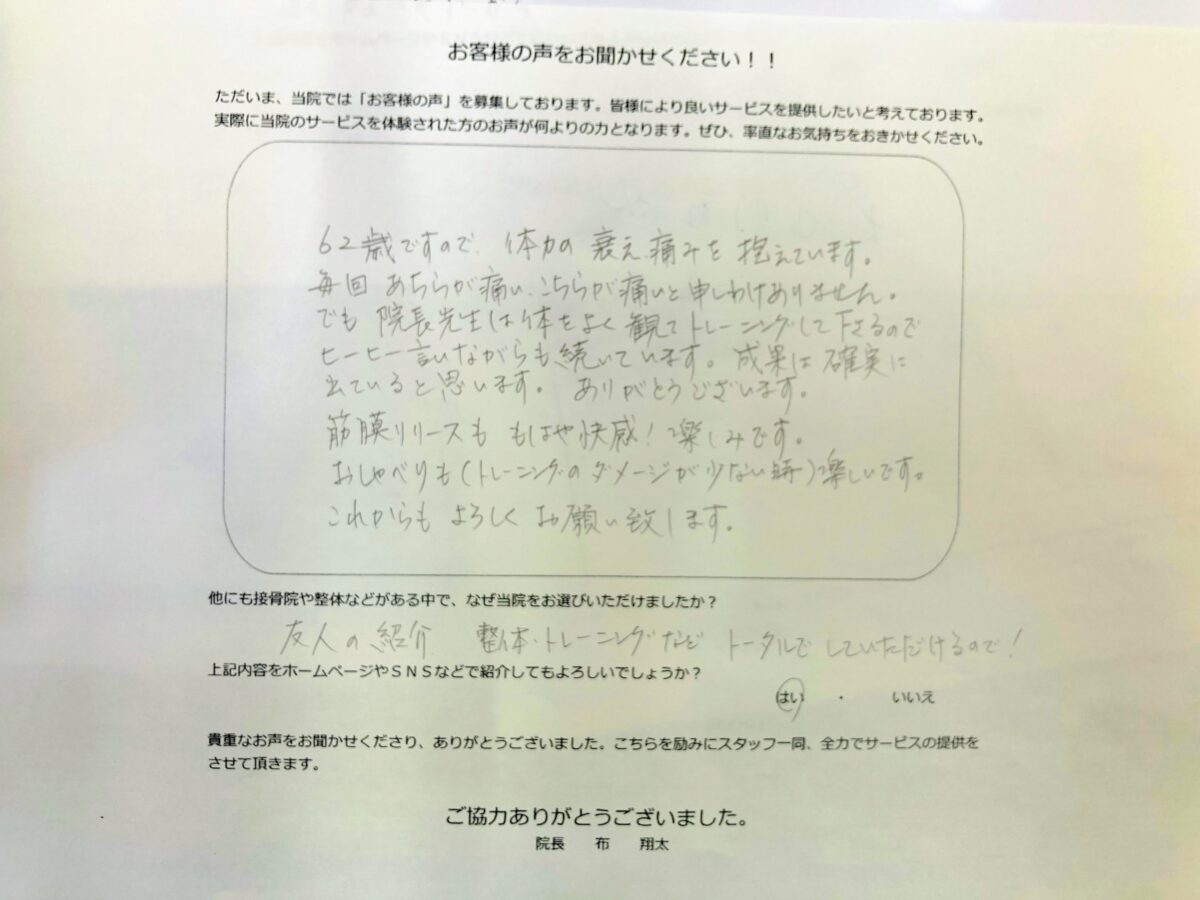 お客様の声をお聞かせください！！
ただいま、当院では「お客様の声」を募集しております。皆様により良いサービスを提供したいと考えております。
実際に当院のサービスを体験された方のお声が何よりの力となります。ぜひ、率直なお気持ちをおきかせください。
62歳ですので、体力の衰え、痛みを抱えています。
毎回あちらが痛い、こちらが痛いと申しわけありません。
でも院長先生は体をよく観てトレーニングして下さるので
ヒーヒー言いながらも続いています。成果は確実に
出ていると思います。ありがとうございます。
筋膜リリースももはや快感！楽しみです。
おしゃべりも（トレーニングのダメージが少ない時）楽しいです。
これからもよろしくお願い致します。
他にも接骨院や整体などがある中で、なぜ当院をお選びいただけましたか？
友人の紹介 整体・トレーニングなどトータルでしていただけるので！
上記内容をホームページやＳＮＳなどで紹介してもよろしいでしょうか？
はい ・ いいえ
貴重なお声をお聞かせくださり、ありがとうございました。こちらを励みにスタッフ一同、全力でサービスの提供を
させて頂きます。
ご協力ありがとうございました。
院長 布 翔太